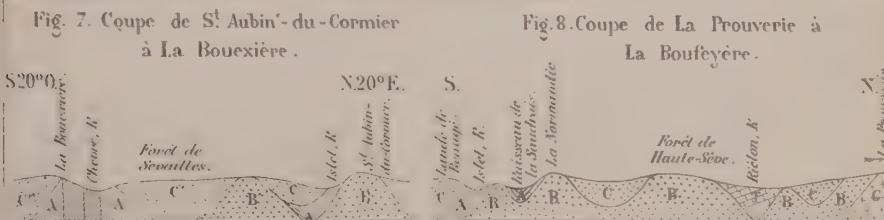 Fig. 7. Coupe de St. Aubin-du-Cormier
à La Bouexière.
S20°O.
N.20°E.
La Bouexière
Chevré, R
Forêt de
Sevailles.
Islet, R.
St Aubin-
du-Cormier.
C A A C B C A B
Fig. 8. Coupe de La Prouverie à
La Boufeyère.
S.
N.
Lande de
Islet, R.
Ruisseau de
la Saudrais
La Normandie
Forêt de
Haute-Sève.
C A B A B C B B C B C